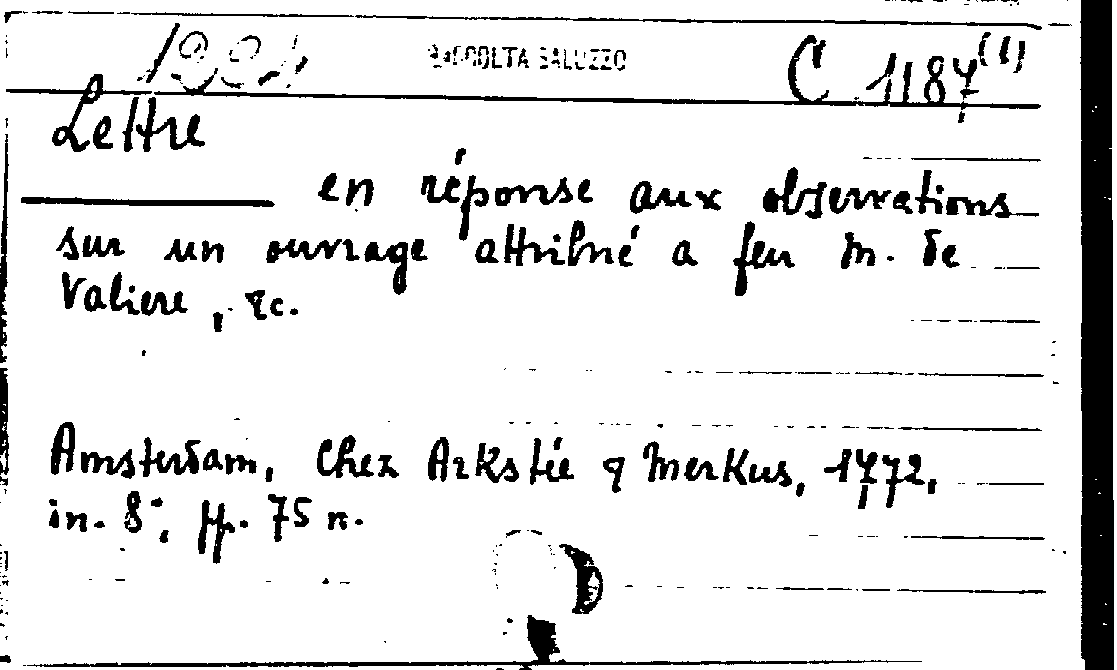 RACCOLTA SALUZZO
C 1187 (1)
Lettre
en réponse aux observations
sur un ouvrage attribué a feu M. de
Valiere, &c.
Amsterdam, chez Arkstée & Merkus, 1772,
in-8°, pp. 75 n.